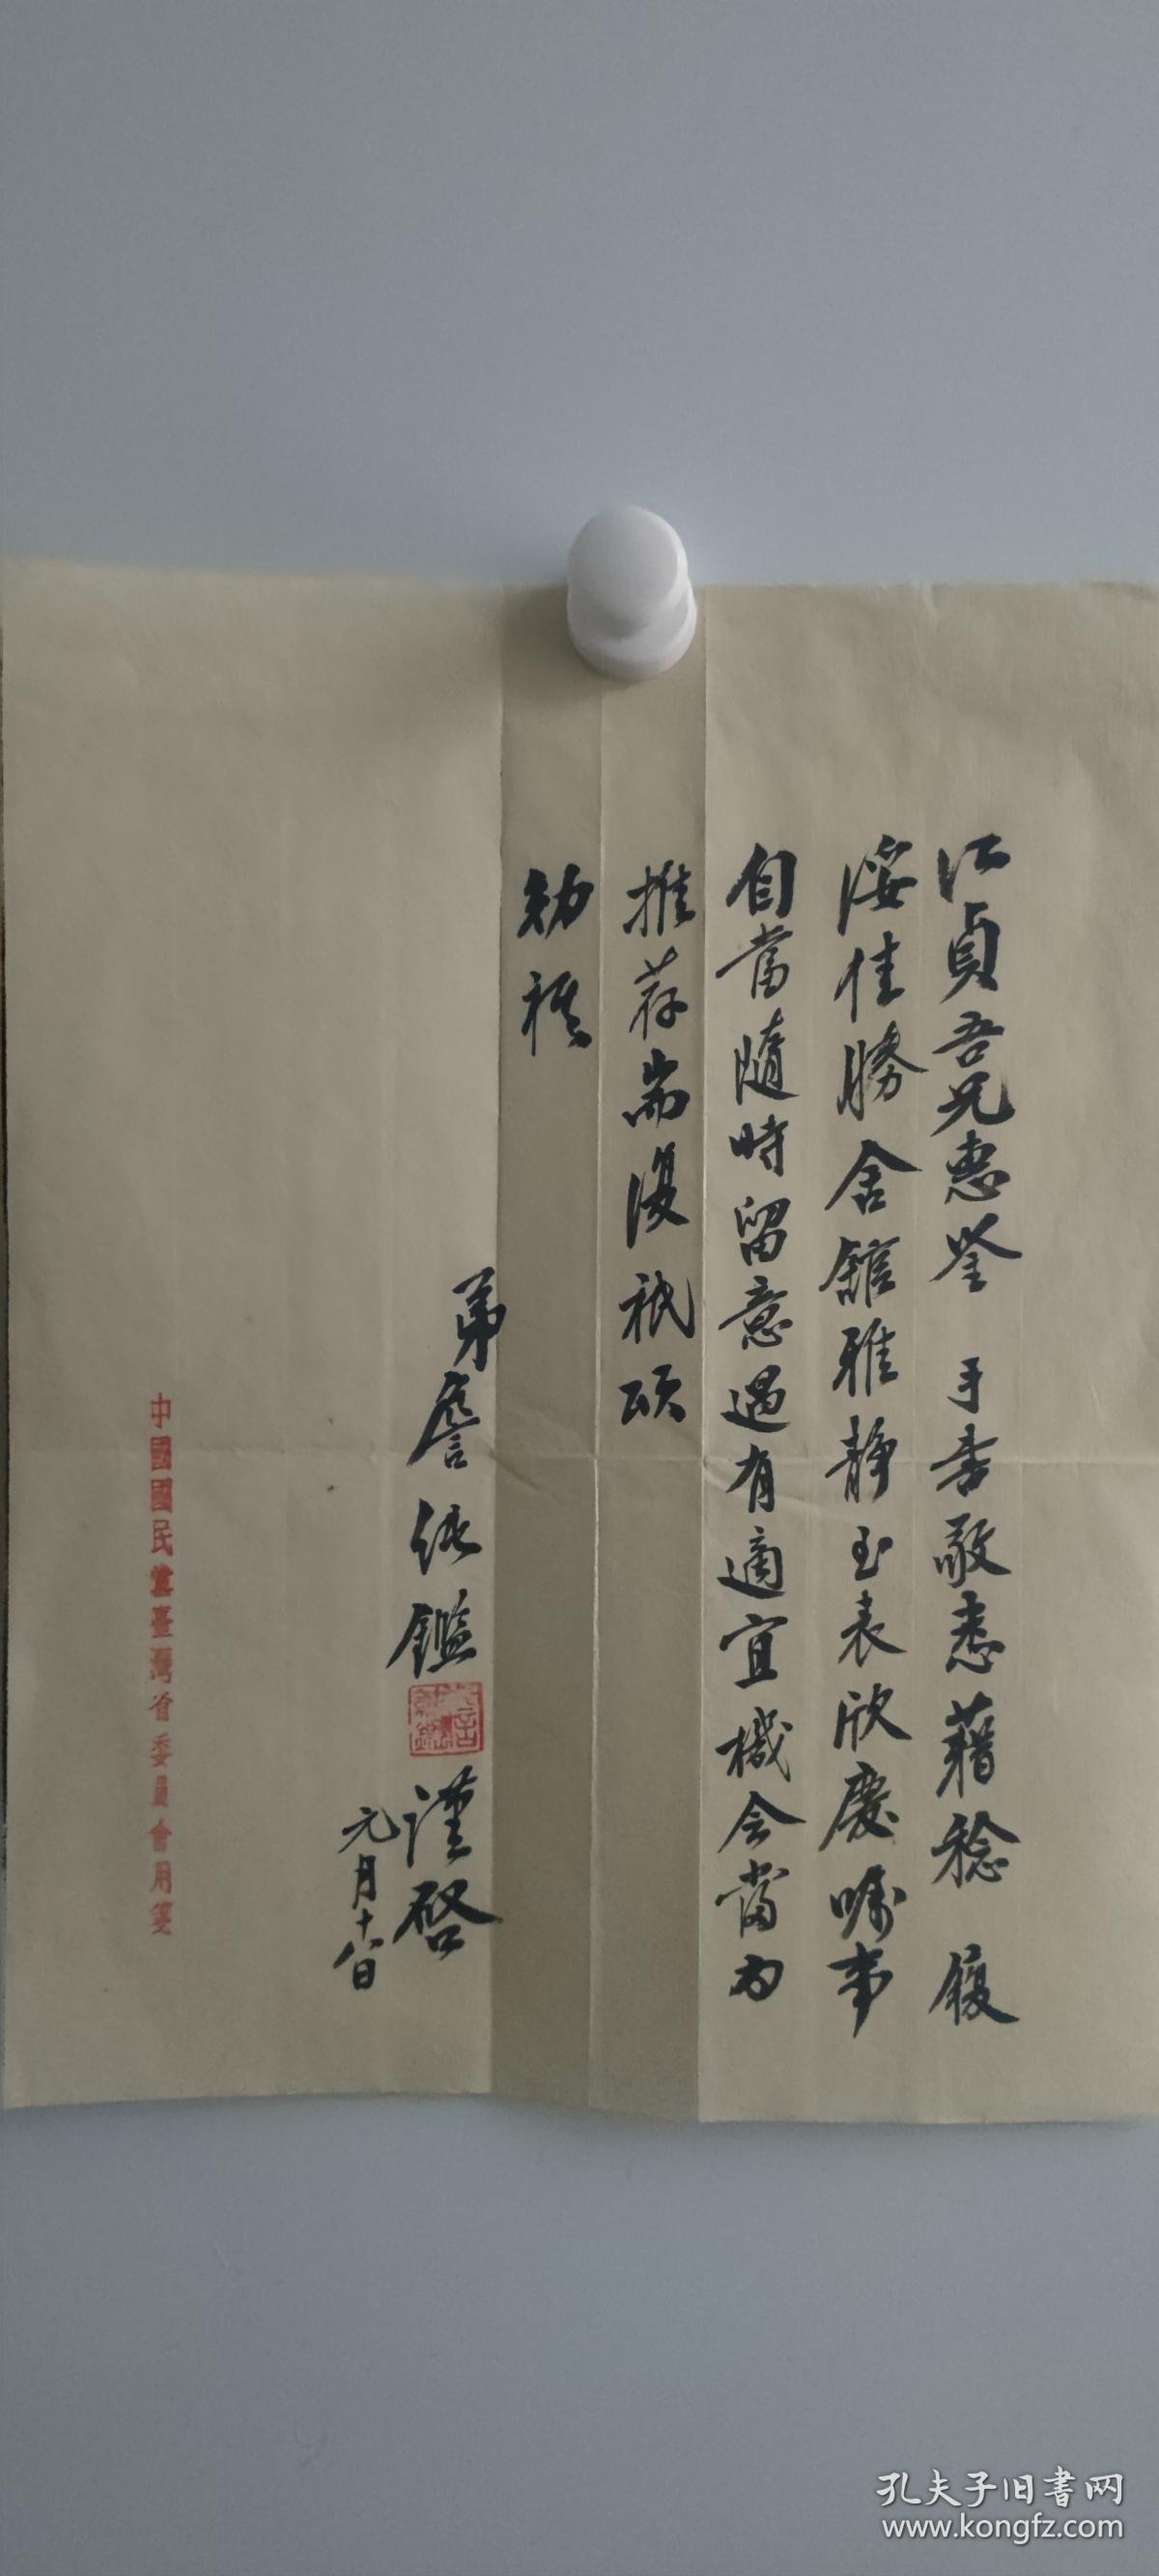 江貞吾兄惠鉴 手書敬悉藉稔 履
綏佳勝舍館雅静至表欣慶嘱事
自當隨時留意遇有適宜機会當为
推荐耑復祇頌
勛祺
弟詹純鑑
謹啓
元月十八日
中國國民黨臺灣省委員會用箋
孔夫子旧書网
www.kongfz.com